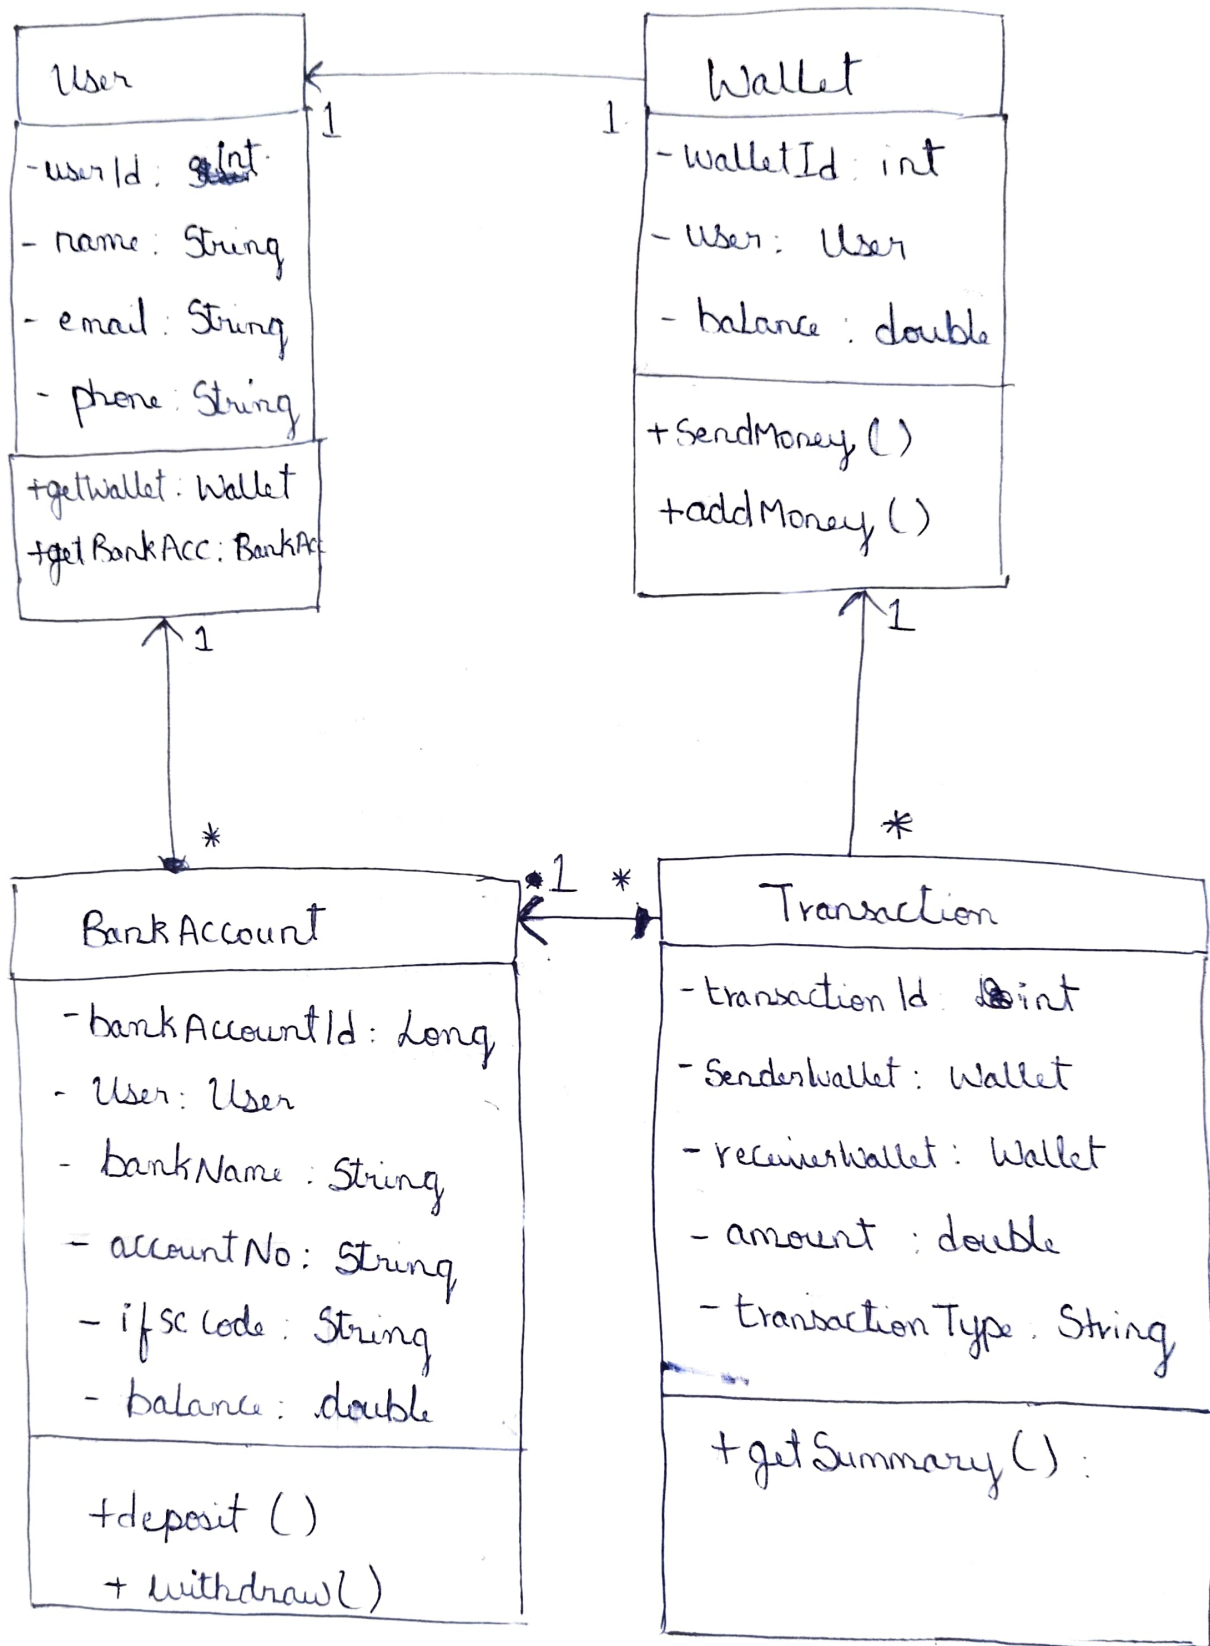 User
1
- userId : int
- name : String
- email : String
- phone : String
+getWallet : Wallet
+getBankAcc : BankAc
1
Wallet
1
- walletId : int
- user : User
- balance : double
+ SendMoney ( )
+addMoney ( )
1
*
BankAccount
1
- bankAccountId : Long
- User : User
- bankName : String
- accountNo : String
- ifsc Code : String
- balance : double
+deposit ( )
+ withdraw( )
*
*
Transaction
- transactionId : int
- SenderWallet : Wallet
- receiverWallet : Wallet
- amount : double
- transactionType : String
+ getSummary ( ) :